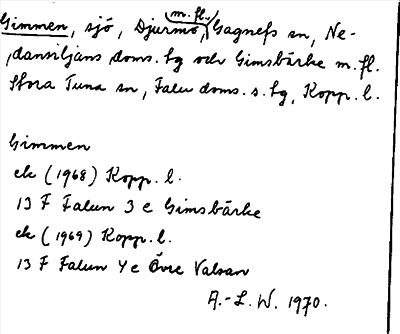 m. fl.
Gimmen, sjö, Djurmo, Gagnefs sn, Ne-
dansiljans doms. lg och Gimsbärke m. fl.
Stora Tuna sn, Falu doms. s. lg, Kopp. l.
Gimmen
ek (1968) Kopp. l.
13 F Falun 3 e Gimsbärke
ek (1969) Kopp. l.
13 F Falun 4 e Övre Valsan
A.-L. W. 1970.